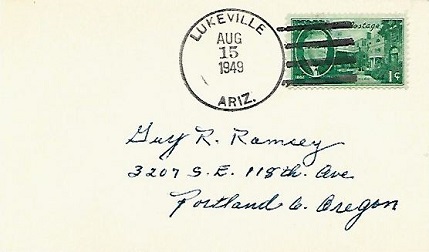 LUKEVILLE
AUG
15
1949
ARIZ.
Postage
1¢
Guy R. Ramsey
3207 S.E. 118th. Ave
Portland 6. Oregon